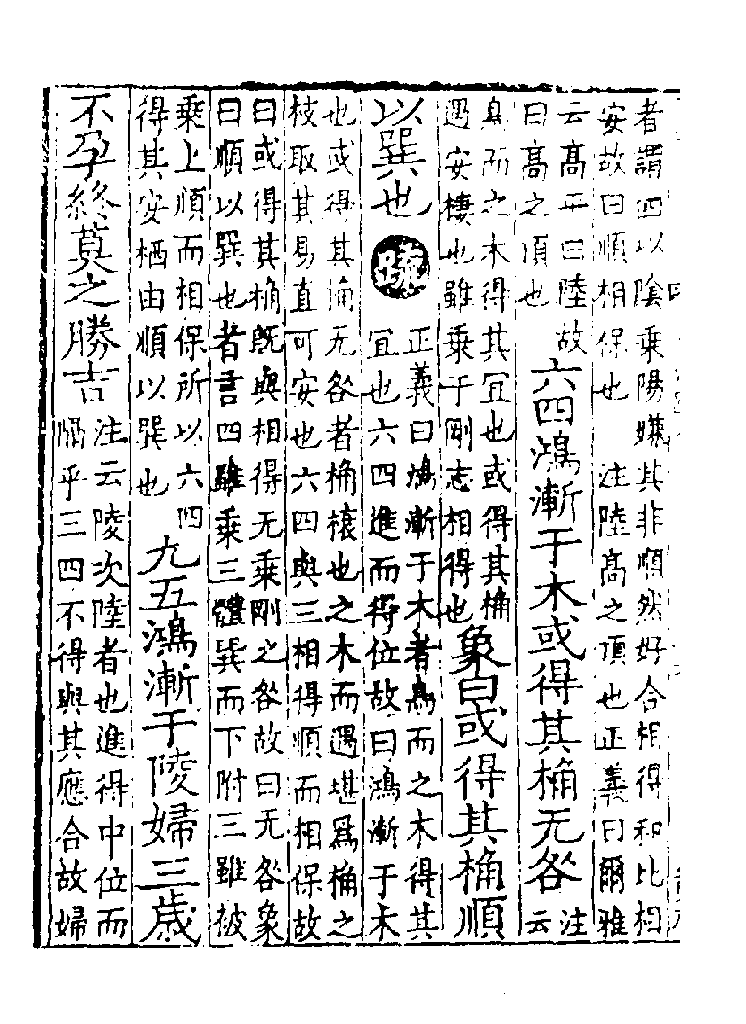 者謂四以陰乘陽嫌其非順然好合相得和比相
安故曰順相保也　注陸高之頂也正義曰爾雅
云高平曰陸故
曰高之頂也
六四鴻漸于木或得其桷无咎
注
云
鳥而之木得其宜也或得其桷
遇安棲也雖乘于剛志相得也
象曰或得其桷順
以巽也
疏
正義曰鴻漸于木者鳥而之木得其
宜也六四進而得位故曰鴻漸于木
也或得其桷无咎者桷榱也之木而遇堪爲桷之
枝取其易直可安也六四與三相得順而相保故
曰或得其桷既與相得无乘剛之咎故曰无咎象
曰順以巽也者言四雖乘三體巽而下附三雖被
乘上順而相保所以六四
得其安栖由順以巽也
九五鴻漸于陵婦三歲
不孕終莫之勝吉
注云陵次陸者也進得中位而
隔乎三四不得與其應合故婦